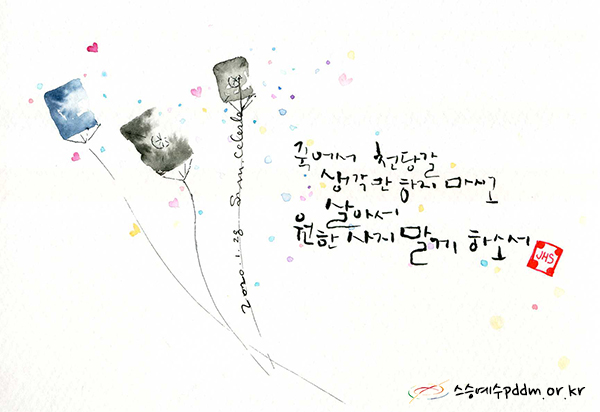 죽어서 천당갈
생각만 하지 마시고
살아서
원한 사지 말게 하소서
JHS
2020.1.28
스승예수pddm.or.kr